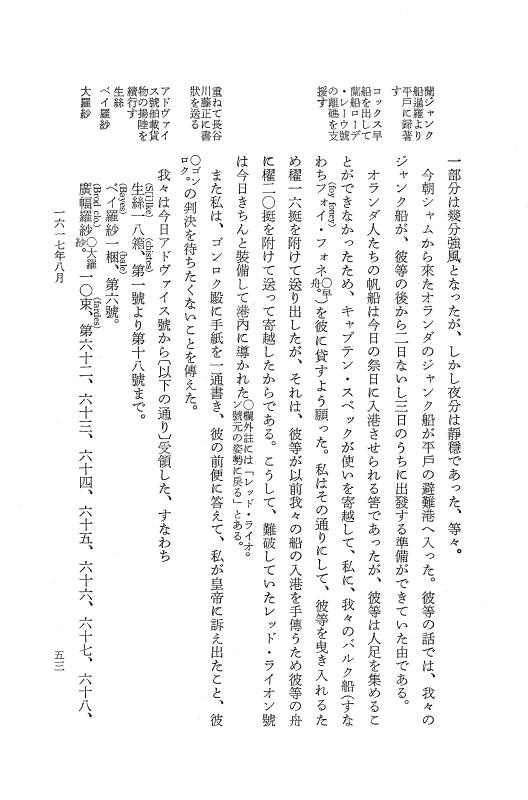 蘭ジャンク
船暹羅より
平戸に歸著
す
コックス早
船を出して
蘭船ローデ
・レーウ號
の離礁を支
援す
重ねて長谷
川藤正に書
狀を送る
アドヴァイ
ス號船載貨
物の揚陸を
續行す
生絲
ベイ羅紗
大羅紗
一部分は幾分强風となったが、しかし夜分は靜穩であった、等々。
今朝シャムから來たオランダのジャンク船が平戸の避難港へ入った。彼等の話では、我々の
ジャンク船が、彼等の後から二日ないし三日のうちに出發する準備ができていた由である。
オランダ人たちの帆船は今日の祭日に入港させられる筈であったが、彼等は人足を集めるこ
とができなかったため、キャプテン・スペックが使いを寄越して、私に、我々のバルク船(すな
わちフォイ・フォネ(foy foney)〇早舟。)を彼に貸すよう願った。私はその通りにして、彼等を曳き入れるた
め櫂一六挺を附けて送り出したが、それは、彼等が以前我々の船の入港を手傳うため彼等の舟
に櫂二〇挺を附けて送って寄越したからである。こうして、難破していたレッド・ライオン號
は今日きちんと裝備して港內に導かれた〇欄外註には「レッド・ライオン號元の姿勢に戾る」とある。。
また私は、ゴンロク殿に手紙を一通書き、彼の前便に答えて、私が皇帝に訴え出たこと、彼
〇ゴンロク。の判決を待ちたくないことを傳えた。
我々は今日アドヴァイス號から〔以下の通り〕受領した、すなわち
生絲(Silke)一八箱(chistes)、第一號より第十八號まで。
ベイ羅紗(Bayes)一梱(bale)、第六號。
廣幅羅紗(Brod cloth)〇大羅紗。一〇束(fardes)、第六十二、六十三、六十四、六十五、六十六、六十七、六十八、
一六一七年八月
五三